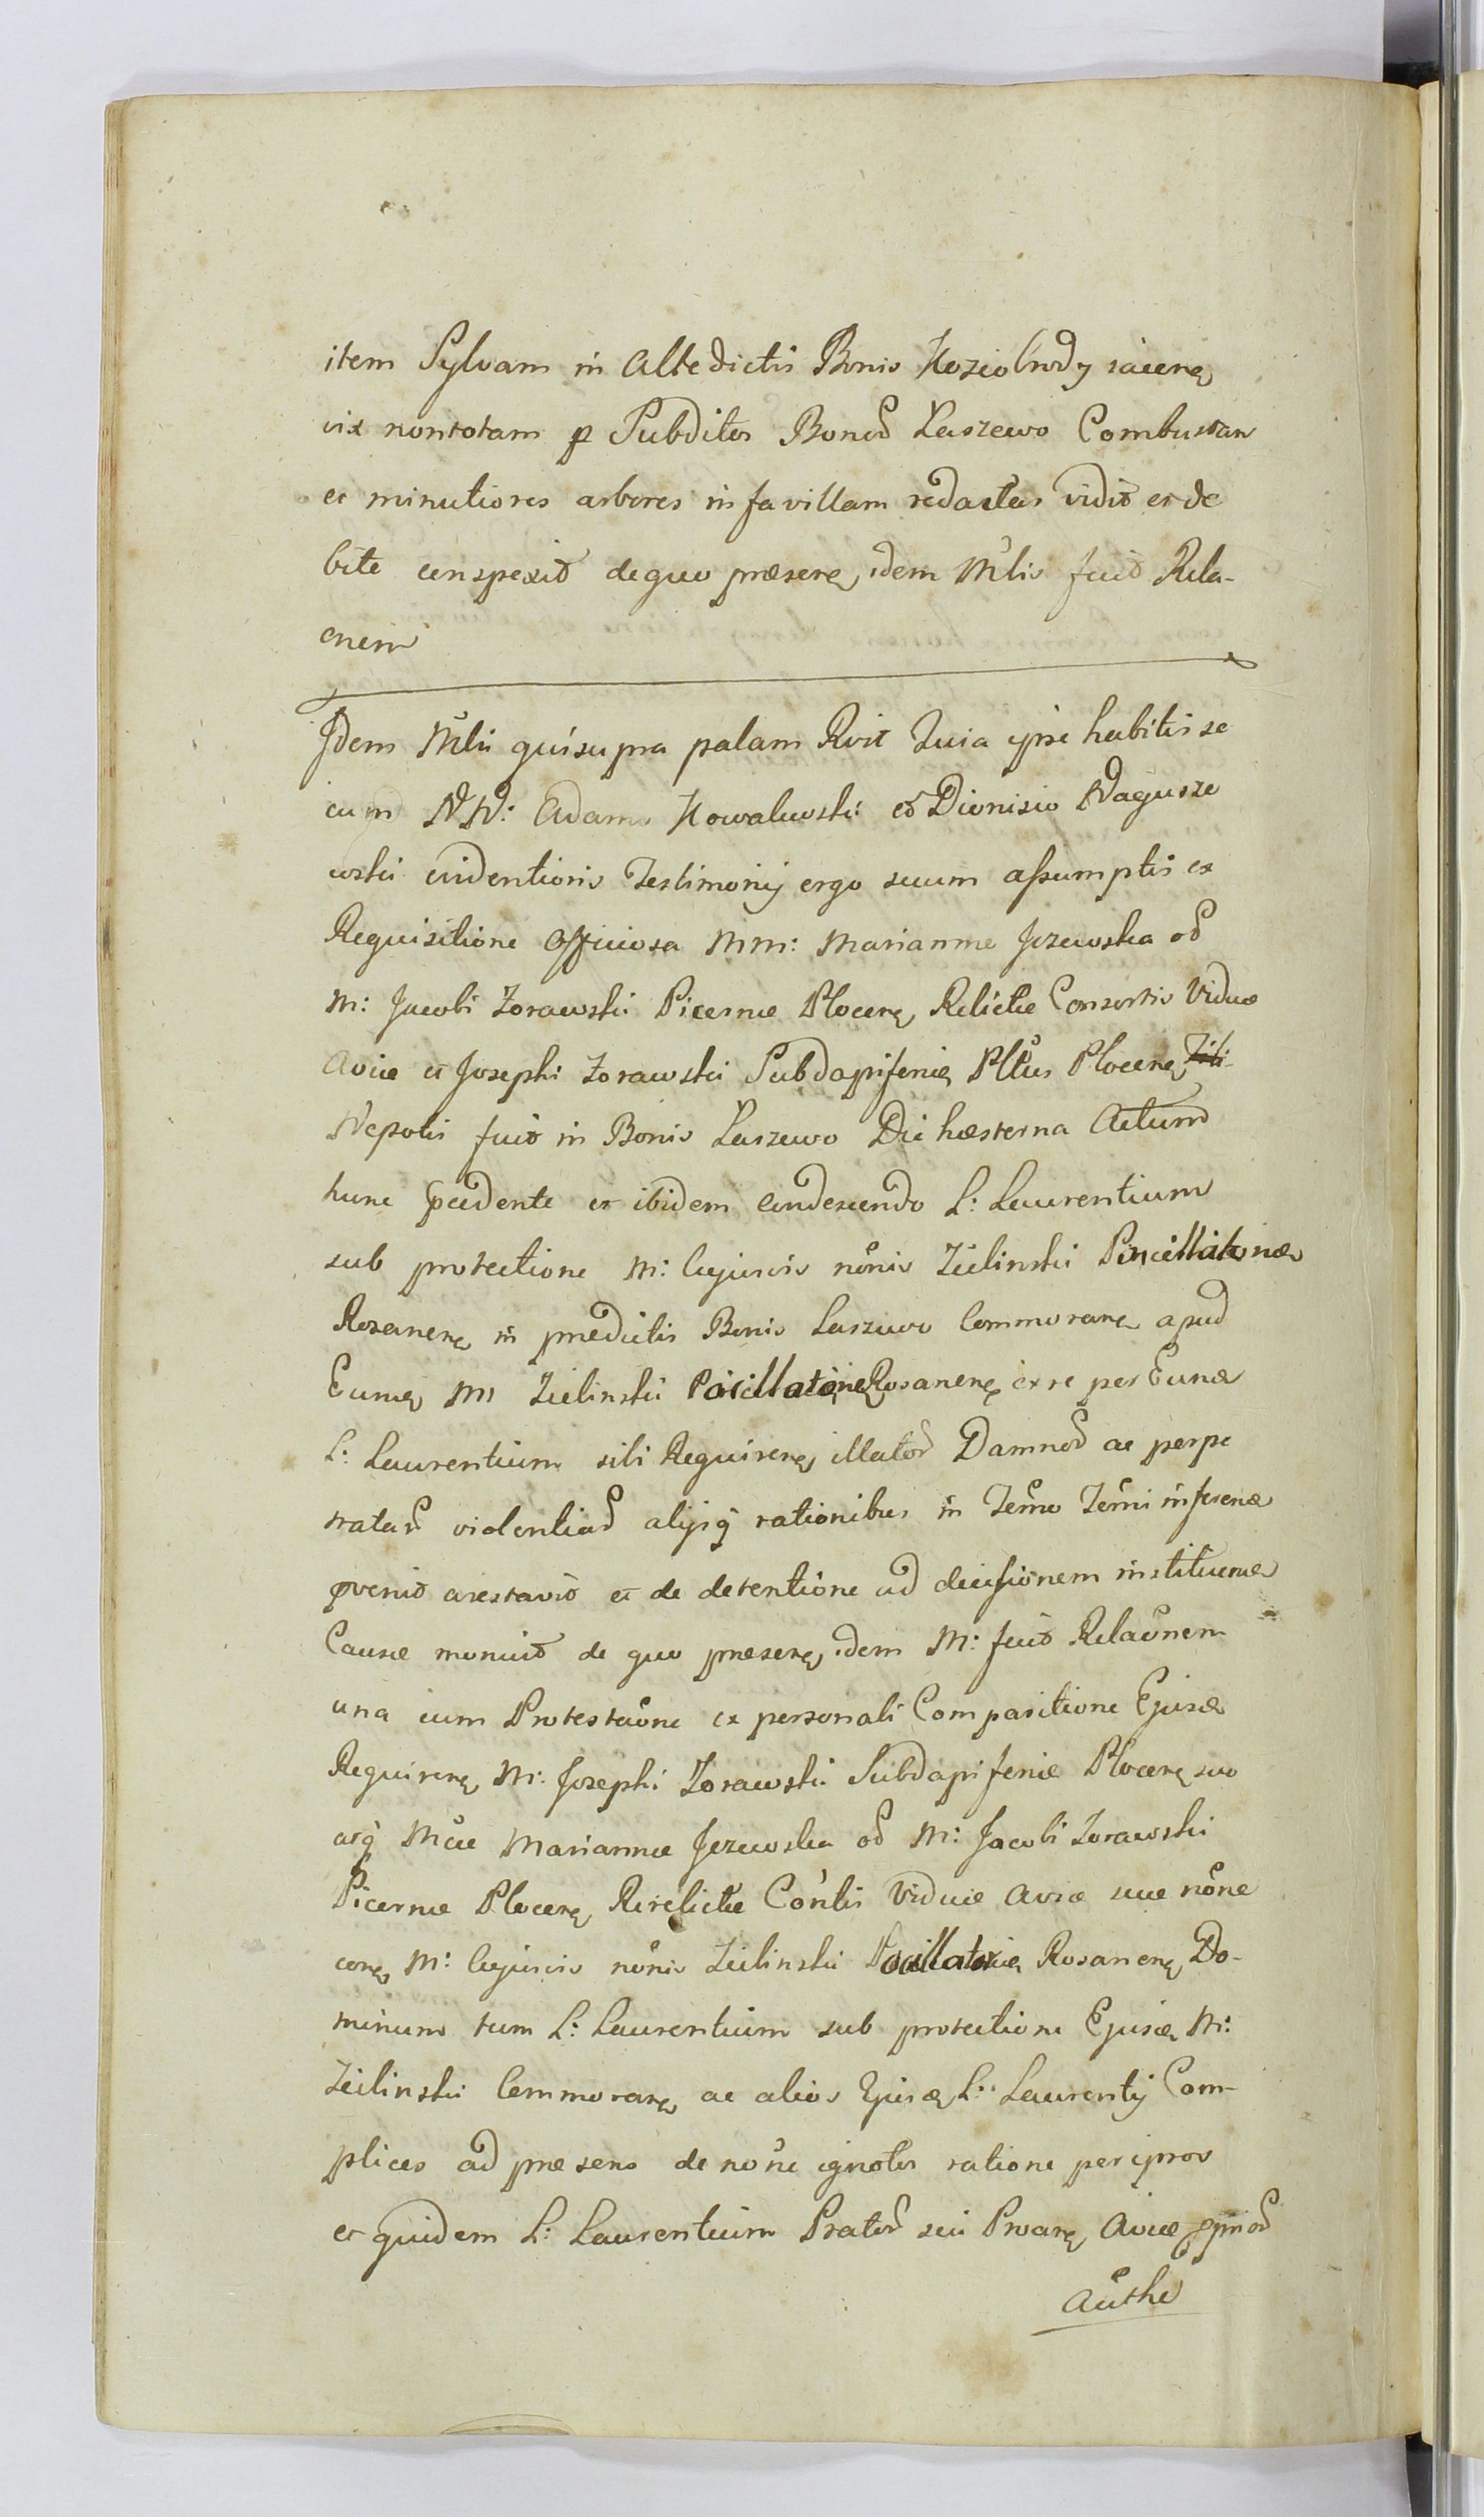 item Sylvam in Altedictis Bonis Koziobrody iacenę
vix non totam p Subditos Bonoꝝ Laszewo Combustam
et minutiores arbores in favillam redactas vidit et de
bite conspexit de quo præsenę idem Mlis fecit Rela-
onem
Idem Mlis qui supra palam Rvit Quia ipse habitis se
cum NN: Adamo Kowalewski et Dionisio Wagusze
wski evidentioris Testimonij ergo secum assumptis ex
Requisitione Officiosa MM: Mariannæ Jezewska oł
M: Jacobi Zorawski Picernæ Plocenę Relictæ Consortis Viduæ
Aviæ et Josephi Zorawski Subdapiferię Pltus Plocenę
Nepotis fuit in Bonis Laszewo Die hæsterna Actum
hunc pcedente et ibidem condescendo L: Laurentium
sub protectione M: Cujusvis nonis Zielinski Pocillatoriæ
Rozanenę in prædictis Bonis Laszewo Commoranę apud
Eumę M Zielinski Pocillatorię Rosanenę ex re per Eunæ
L: Laurentium sibi Requirenę illatoꝝ Damnoꝝ ac perpe
trataꝝ violentiaꝝ alijsq rationibus in Termo Termi inferenæ
pvenit arestavit et de detentione ad decisionem instituenæ
Causæ monuit de quo præsenę idem M: fecit Relaonem
una cum Protestaone ex personali Comparitione Ejusæ
Requirenę M: Josephi Zorawski Subdapiferiæ Plocenę suo
atq Mcæ Mariannæ Jezewska oł M: Jacobi Zorawski
Picernæ Plocenę Rerelictæ Contis Viduæ Aviæ suæ none
conę M: Cujusvis nonis Zielinski Pocillatorię Rosanenę Do-
minum tum L: Laurentium sub protectione Ejusæ M:
Zielinski Commoranę ac alios Ejusæ L: Laurentij Com-
plices ad præsens de none ignotos ratione per ipsos
et quidem L: Laurentium Pratoꝝ seu Proarę Aviæ
Authę